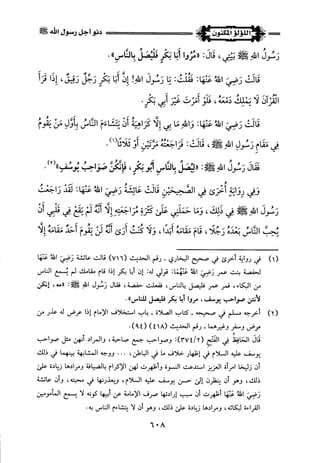 اللؤلؤ المكنون
دنو أجل رسول الله ﷺ
رَسُولُ اللهِ ﷺ بَيْتِي، قَالَ: «مُرُوا أَبَا بَكْرٍ فَلْيُصَلِّ بِالنَّاسِ».
قَالَتْ رَضِيَ اللهُ عَنْهَا: فَقُلْتُ: يَا رَسُولَ اللهِ! إِنَّ أَبَا بَكْرٍ رَجُلٌ رَقِيقٌ، إِذَا قَرَأَ
الْقُرْآنَ لَا يَمْلِكُ دَمْعَهُ، فَلَوْ أَمَرْتَ غَيْرَ أَبِي بَكْرٍ.
قَالَتْ رَضِيَ اللهُ عَنْهَا: وَاللهِ مَا بِي إِلَّا كَرَاهِيَةُ أَنْ يَتَشَاءَمَ النَّاسُ بِأَوَّلِ مَنْ يَقُومُ
فِي مَقَامِ رَسُولِ اللهِ ﷺ، قَالَتْ: فَرَاجَعْتُهُ مَرَّتَيْنِ أَوْ ثَلَاثًا(١).
فَقَالَ رَسُولُ اللهِ ﷺ: «لِيُصَلِّ بِالنَّاسِ أَبُو بَكْرٍ، فَإِنَّكُنَّ صَوَاحِبُ يُوسُفَ»(٢).
وَفِي رِوَايَةٍ أُخْرَى فِي الصَّحِيحَيْنِ قَالَتْ عَائِشَةُ رَضِيَ اللهُ عَنْهَا: لَقَدْ رَاجَعْتُ
رَسُولَ اللهِ ﷺ فِي ذَلِكَ، وَمَا حَمَلَنِي عَلَى كَثْرَةِ مُرَاجَعَتِهِ إِلَّا أَنَّهُ لَمْ يَقَعْ فِي قَلْبِي أَنْ
يُحِبَّ النَّاسُ بَعْدَهُ رَجُلًا، قَامَ مَقَامَهُ أَبَدًا، وَلَا كُنْتُ أَرَى أَنَّهُ لَنْ يَقُومَ أَحَدٌ مَقَامَهُ إِلَّا
(١) في رواية أخرى في صحيح البخاري ـ رقم الحديث (٧١٦) قالت عائشة رَضِيَ اللهُ عَنْهَا
لحفصة بنت عمر رَضِيَ اللهُ عَنْهُمَا: قولي له: إن أبا بكر إذا قام مقامك لم يُسمع الناس
من البكاء، فمر عمر فليصل بالناس، ففعلت حفصة، فقال رسول الله ﷺ: «مه، إنكن
لأنتن صواحب يوسف، مروا أبا بكر فليصل للناس».
(٢) أخرجه مسلم في صحيحه ـ كتاب الصلاة ـ باب استخلاف الإمام إذا عرض له عذر من
مرض وسفر وغيرهما ـ رقم الحديث (٤١٨) (٩٤).
قَالَ الحَافِظُ فِي الفَتْحِ (٣٧٤/٢): وصواحب جمع صاحبة، والمراد أنهن مثل صواحب
يوسف عليه السلام في إظهار خلاف ما في الباطن، ... ووجه المشابهة بينهما في ذلك
أن زليخا امرأة العزيز استدعت النسوة وأظهرت لهن الإكرام بالضيافة ومرادها زيادة على
ذلك، وهو أن ينظرن إلى حسن يوسف عليه السلام، ويعذرنها في محبته، وأن عائشة
رَضِيَ اللهُ عَنْهَا أظهرت أن سبب إرادتها صرف الإمامة عن أبيها كونه لا يسمع المأمومين
القراءة لبكائه، ومرادها زيادة على ذلك، وهو أن لا يتشاءم الناس به.
٦٠٨